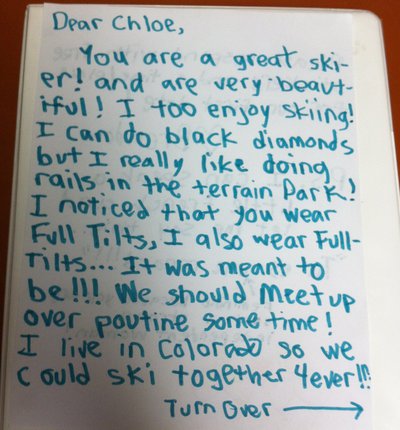 Dear Chloe,
You are a great ski-
er! and are very beaut-
iful! I too enjoy skiing!
I can do black diamonds
but I really like doing
rails in the terrain Park!
I noticed that you wear
Full Tilts, I also wear Full-
Tilts... It was meant to
be!!! We should Meet up
over poutine some time!
I live in Colorado so we
could ski together 4ever!!!
Turn Over →